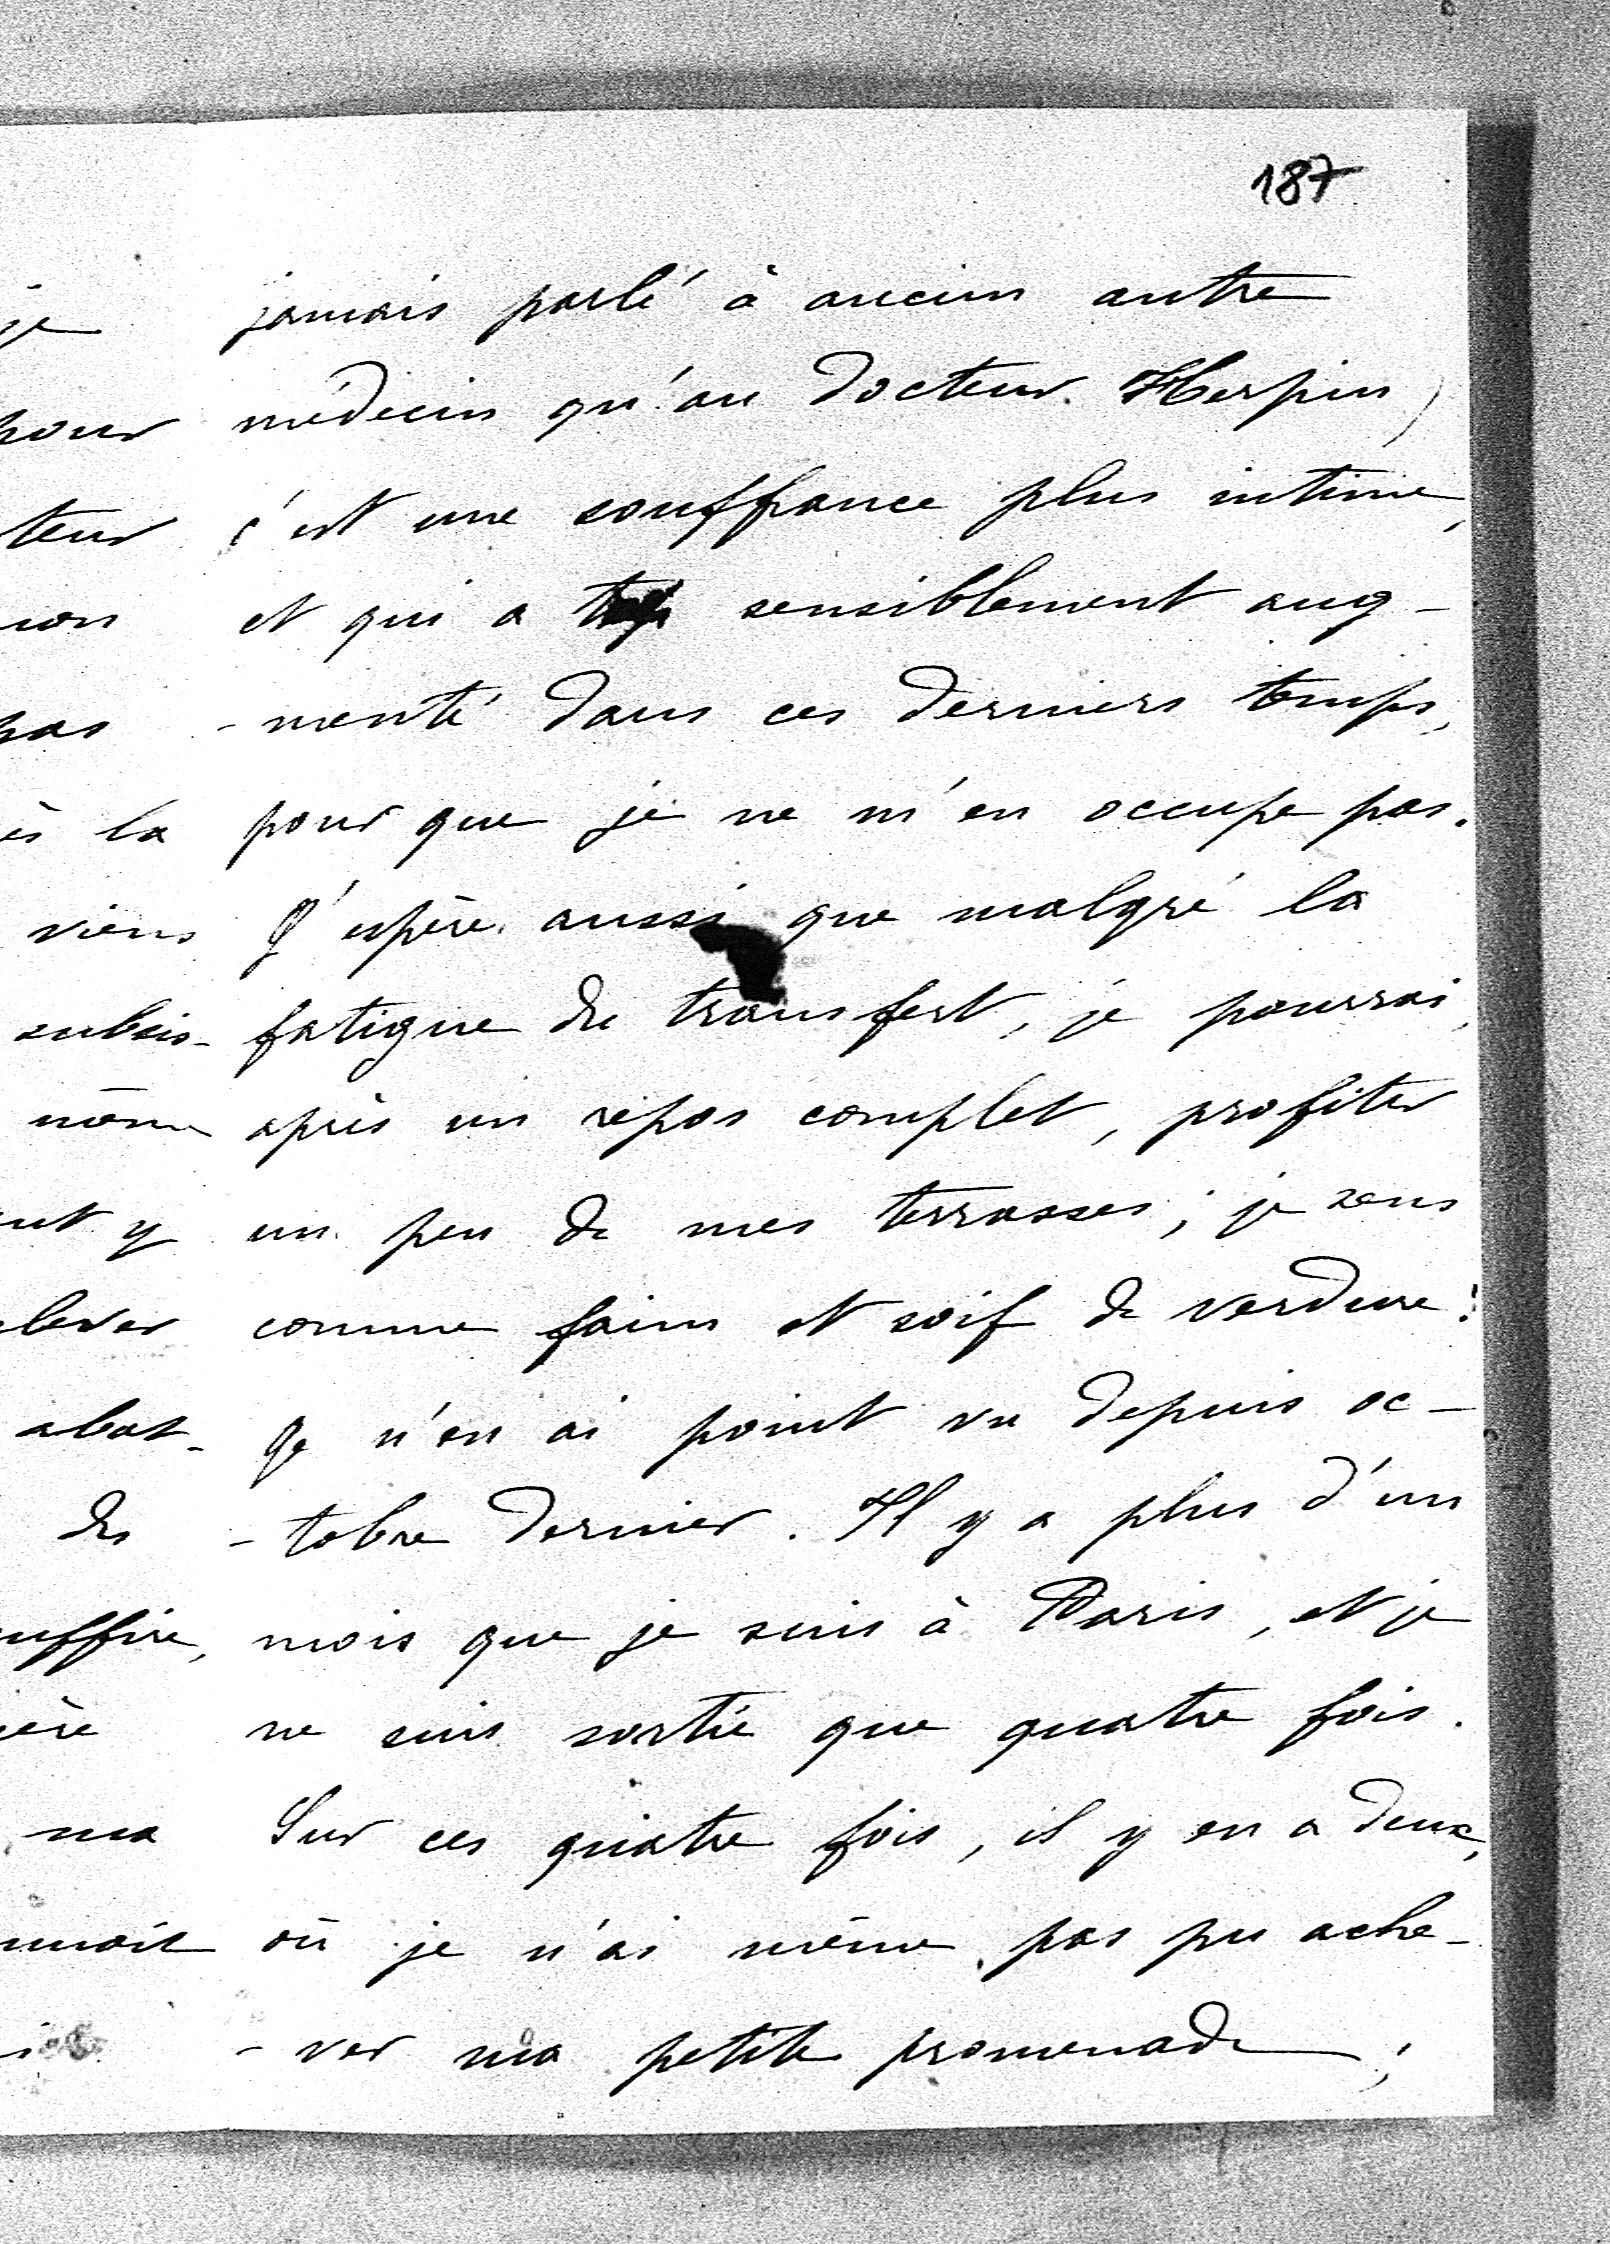 187
jamais parlé à aucun autre
médecin qu'au docteur Herpin)
c'est une souffrance plus intime,
et qui a sensiblement aug-
-menté dans ces derniers temps,
pour que je ne m'en occupe pas.
J'espère aussi que malgré la
fatigue du transfert, je pourrai,
après un repos complet, profiter
un peu de mes terrasses; je sens
comme faim et soif de verdure!
Je n'en ai point vu depuis oc-
-tobre dernier. Il y a plus d'un
mois que je suis à Paris, et je
ne suis sortie que quatre fois.
Sur ces quatre fois, il y en a deux,
où je n'ai même pas pu ache-
-ver ma petite promenade;
je
pour
teur
non
pas
ès la
viens
subsis-
même
ut y
lever
abat-
des
uffire,
ière
ma